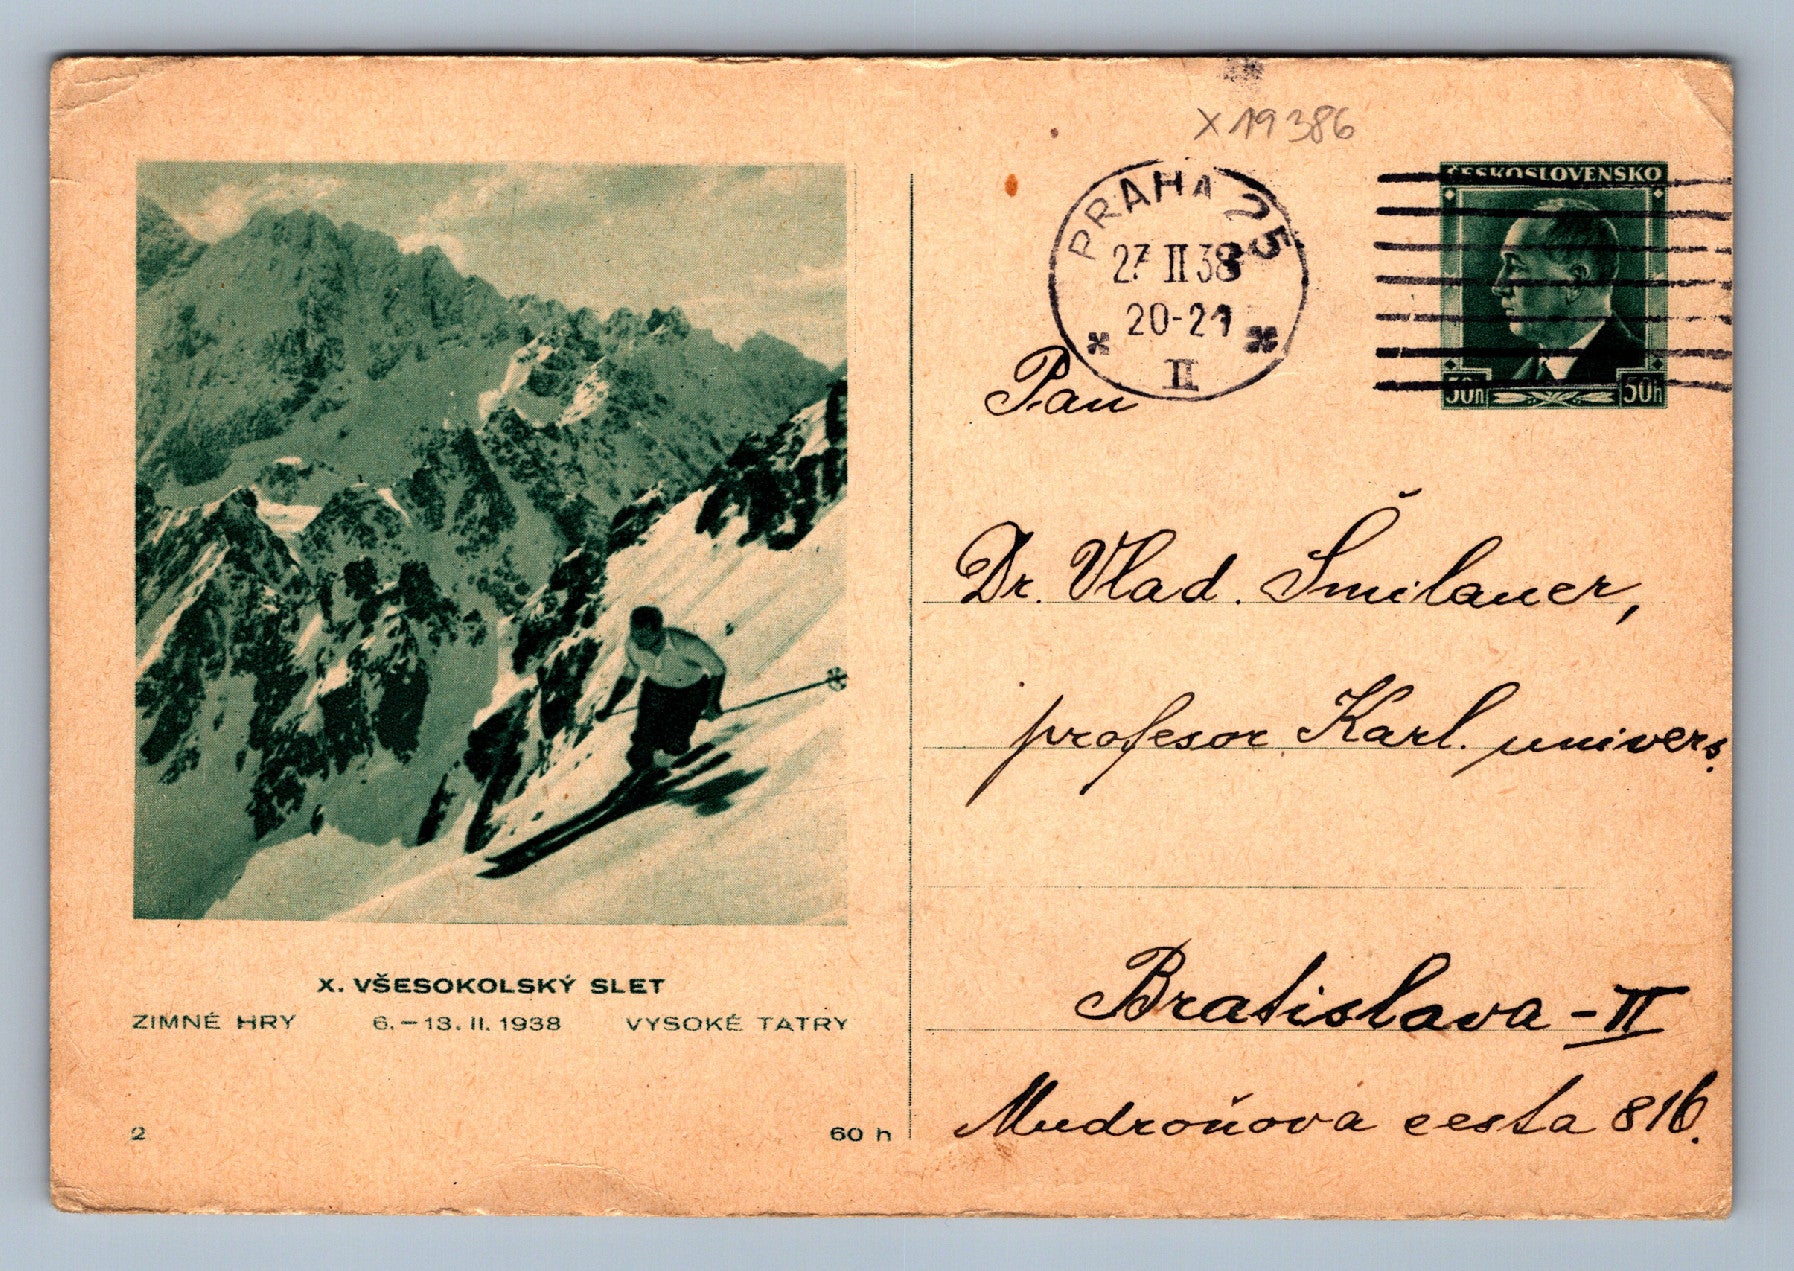 X. VŠESOKOLSKÝ SLET
ZIMNÉ HRY 6.–13. II. 1938 VYSOKÉ TATRY
2
60 h
X 19386
PRAHA 25
27 II 38
20-21
II
ČESKOSLOVENSKO
50h 50h
Pan
Dr. Vlad. Šmilauer,
profesor Karl. univers.
Bratislava - II
Mudroňova cesta 816.